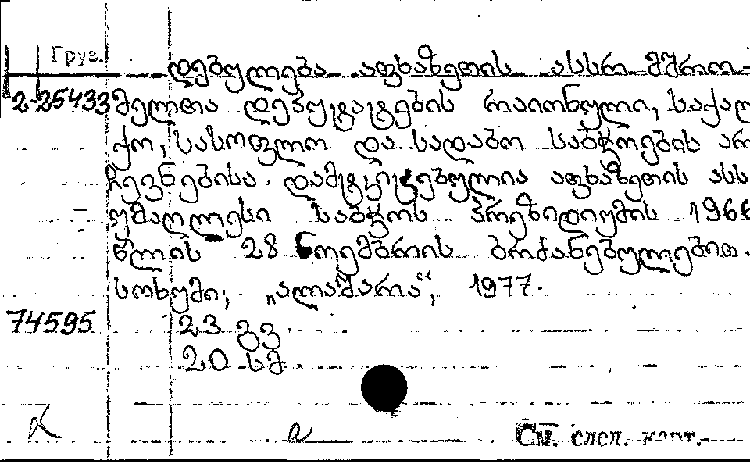 Груз.
დებულება აფხაზეთის ასსრ მშრო-
2-25433 მელთა დეპუტატების რაიონული, საქალა
ქო, სასოფლო და სადაბო საბჭოების არ
ჩევნებისა. დამტკიცებულია აფხაზეთის ასს
უმაღლესი საბჭოს პრეზიდიუმის 1966
წლის 28 ნოემბრის ბრძანებულებით.
სოხუმი, „ალაშარა“, 1977.
74595 23 გვ.
20 სმ.
См. след. карт.